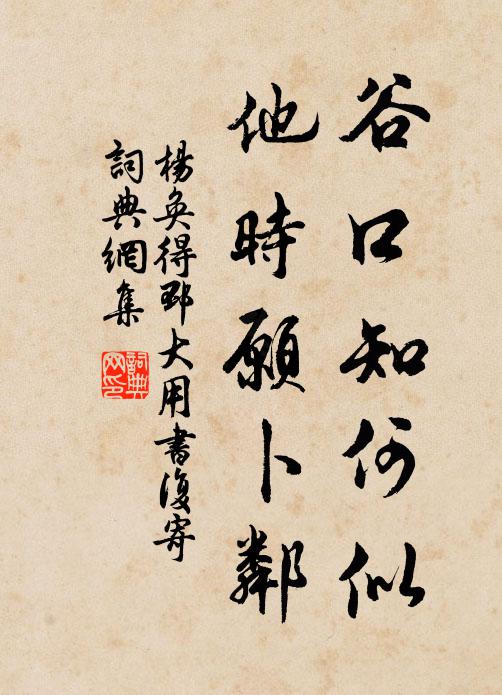 谷口知何似
他時願卜鄰
楊奐得邳大用書復寄
詞典網集
詞典网印